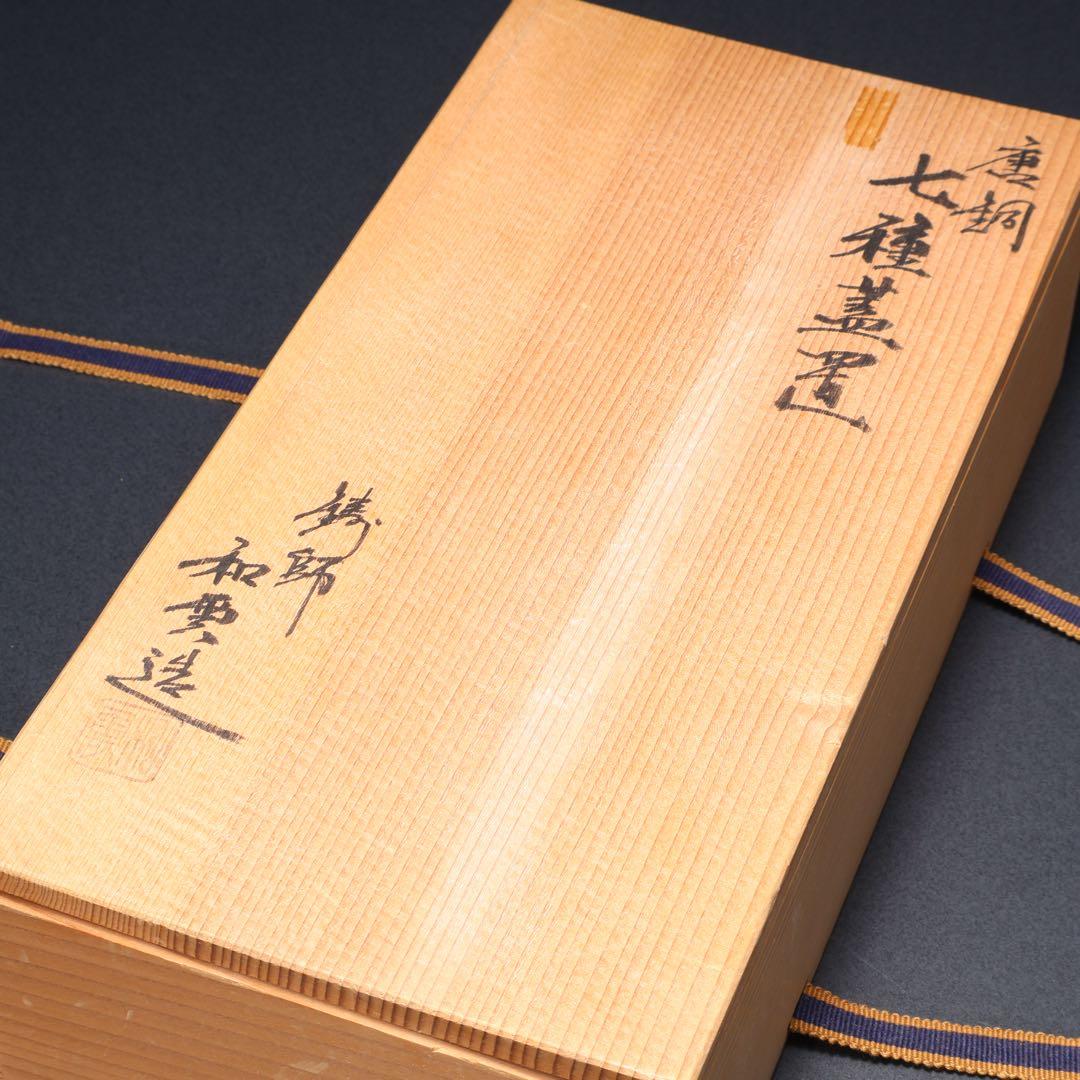 唐銅
七種蓋置
鋳師
和典造